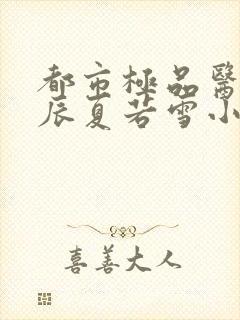 都市極品醫
辰夏若雪小
喜善大人